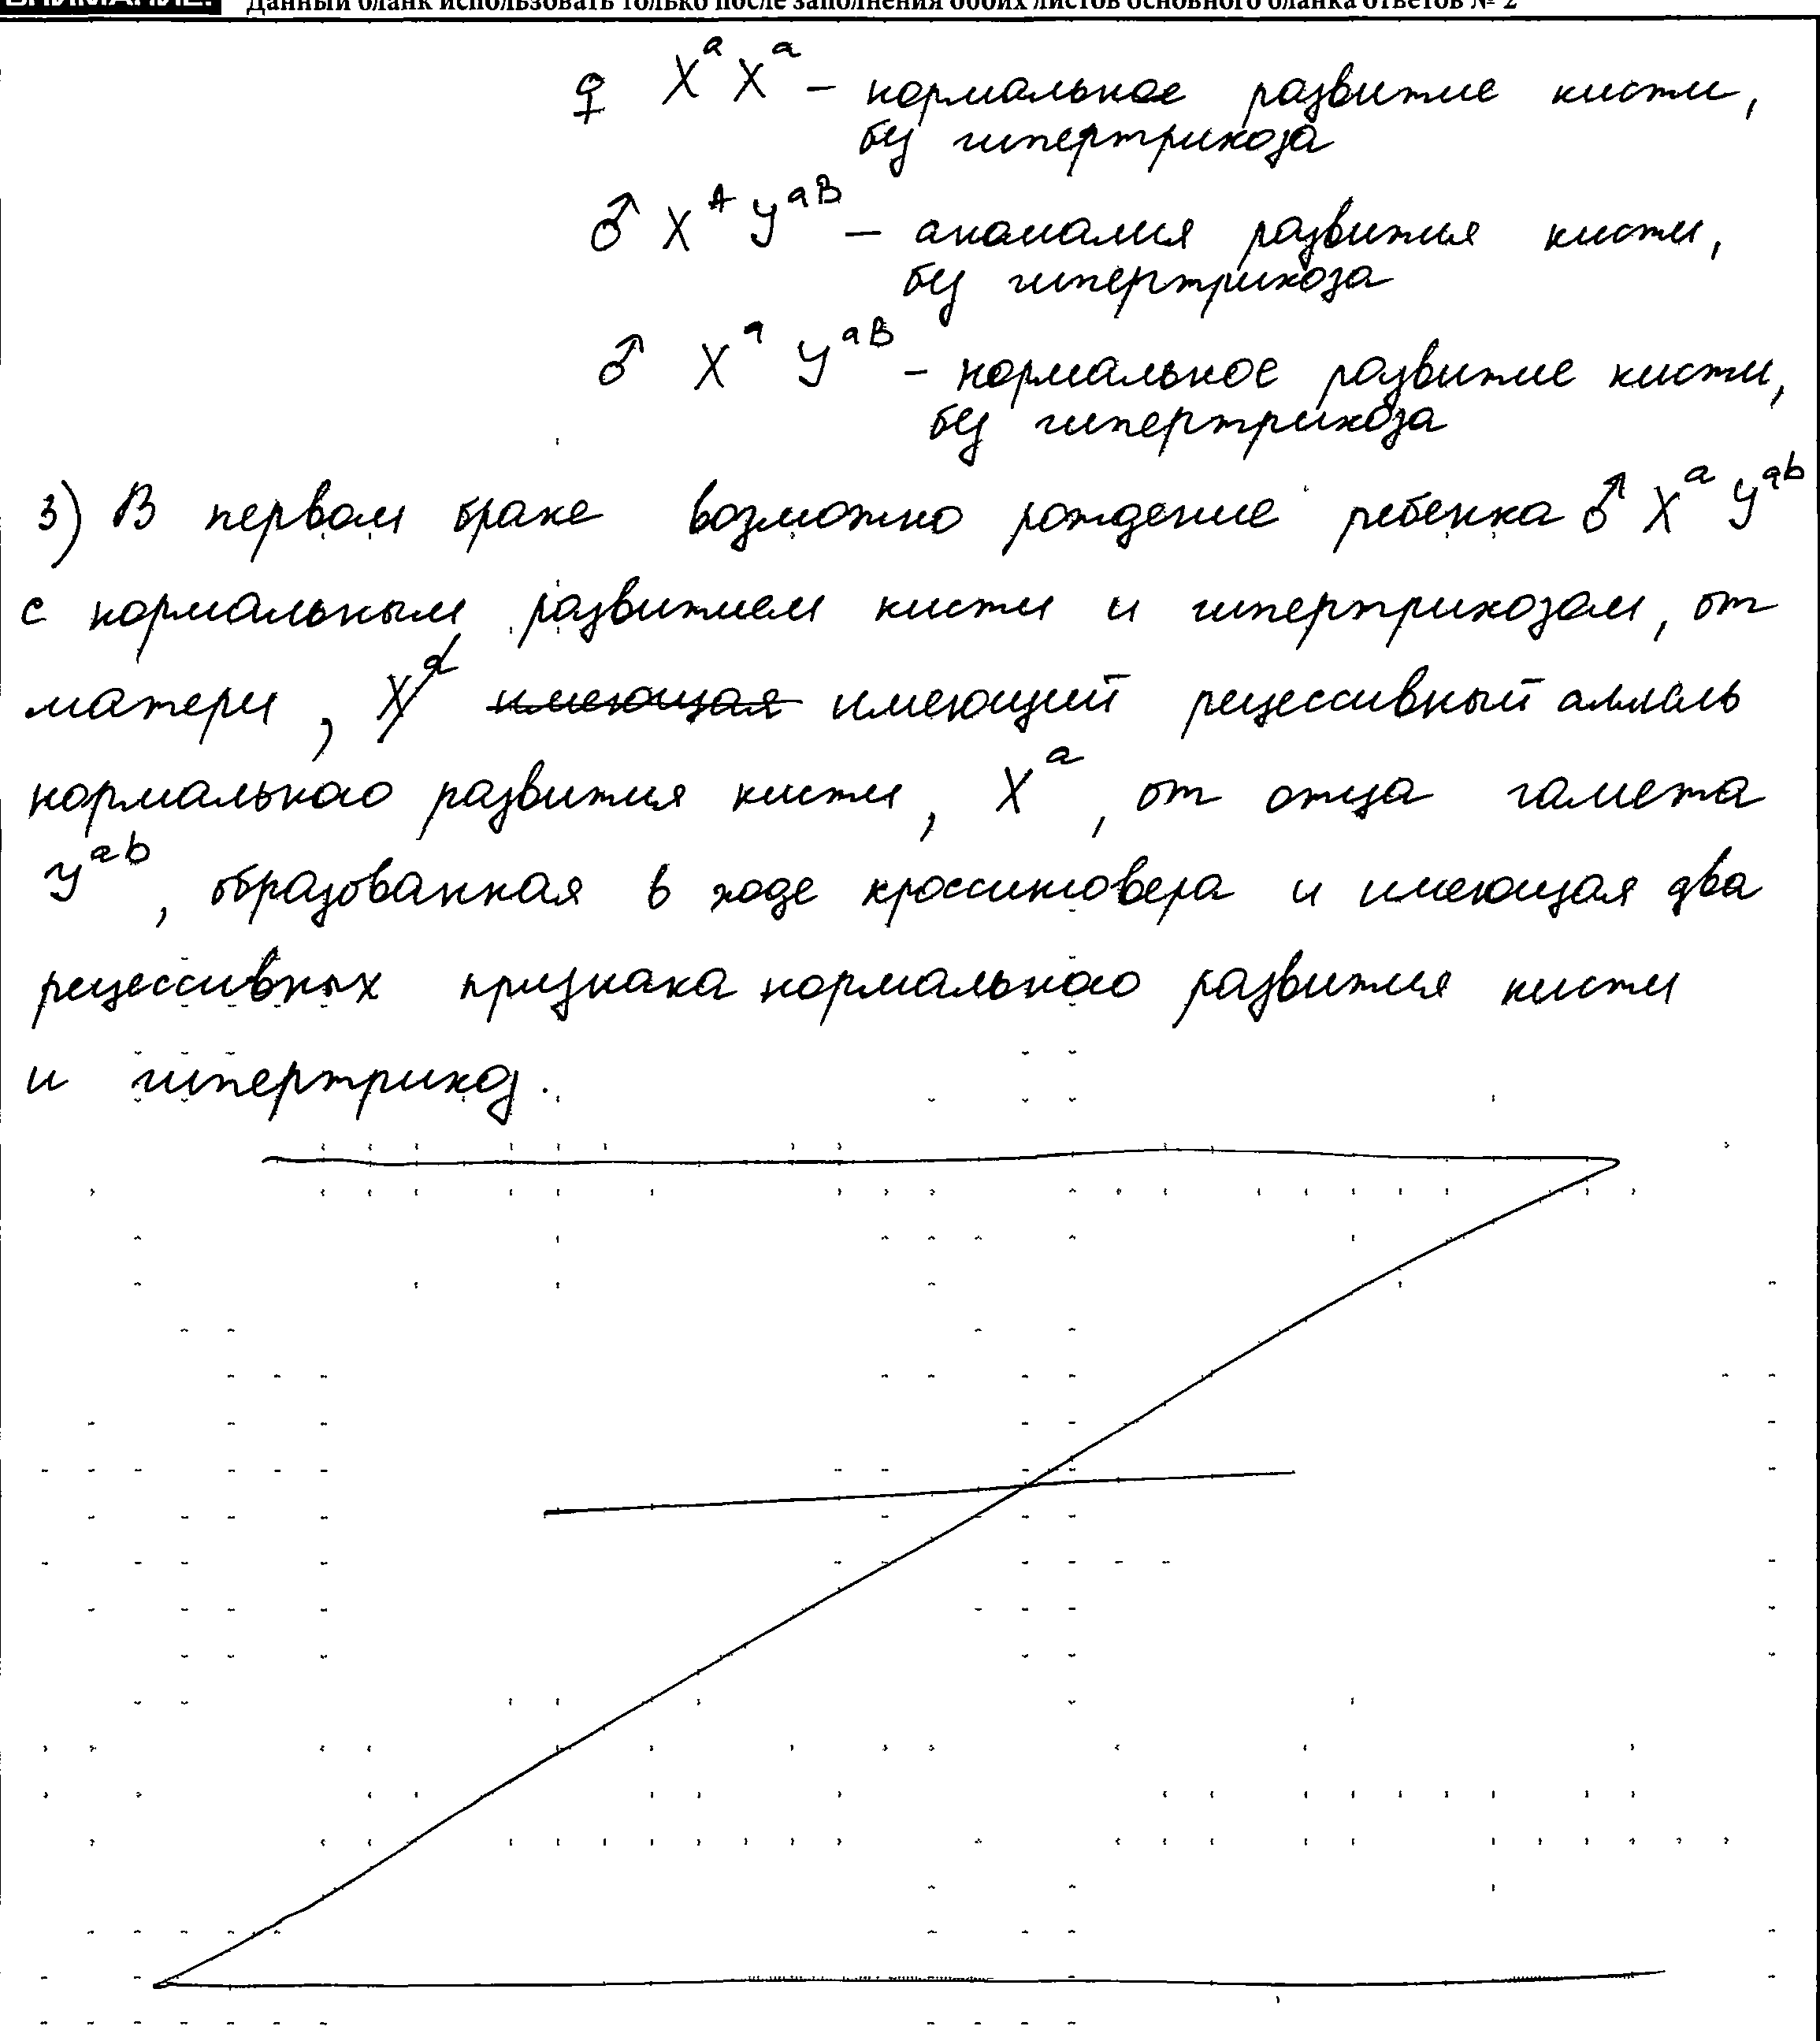 ВНИМАНИЕ! Данный бланк использовать только после заполнения обоих листов основного бланка ответов № 2
♀ XᵃXᵃ – нормальное развитие кисти,
без гипертрихоза
♂ Xᴬ Yᵃᴮ – аномалия развития кисти,
без гипертрихоза
♂ Xᵃ Yᵃᴮ – нормальное развитие кисти,
без гипертрихоза
3) В первом браке возможно рождение ребенка ♂ Xᵃ Yᵃᵇ
с нормальным развитием кисти и гипертрихозом, от
матери, Xᵃ имеющая имеющий рецессивный аллель
нормального развития кисти, Xᵃ, от отца гамета
Yᵃᵇ, образованная в ходе кроссинговера и имеющая два
рецессивных признака нормального развития кисти
и гипертрихоз.